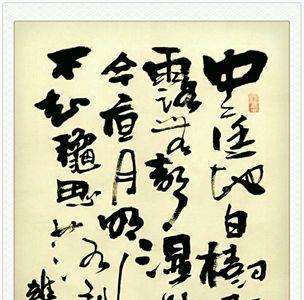 中庭地白樹
露無聲濕
今夜月明人
不知龝思落